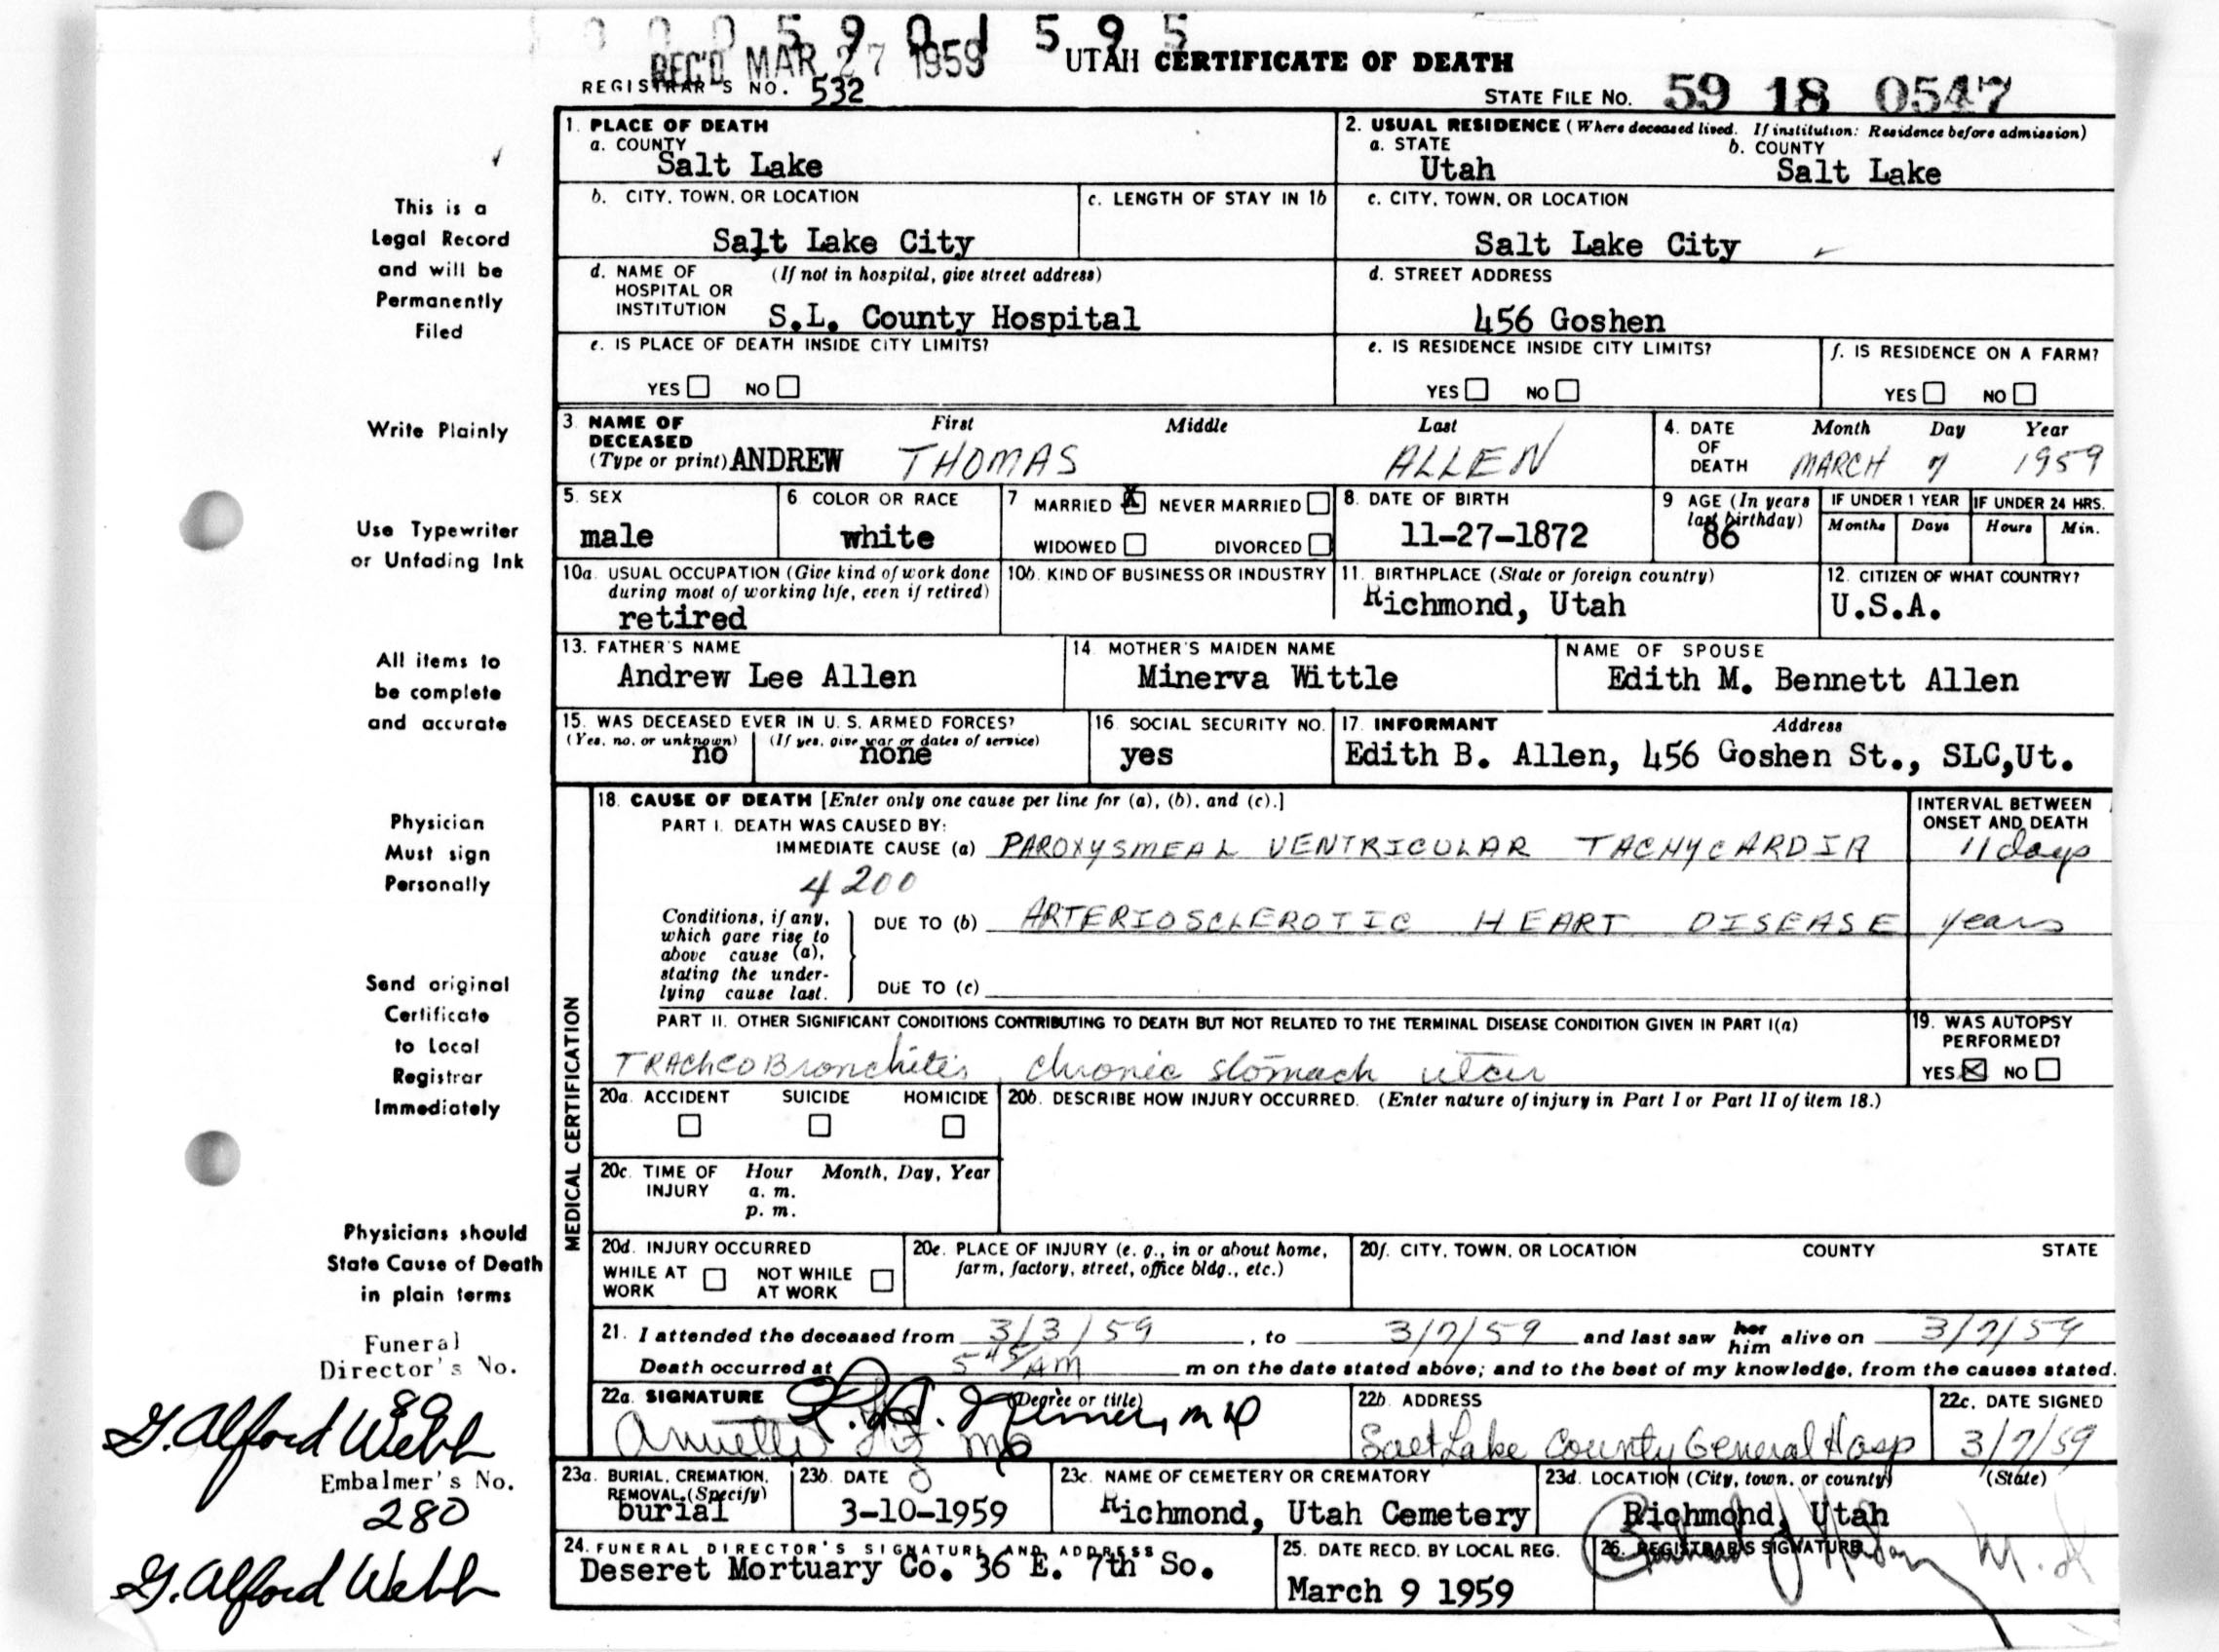 0 0 0 5 9 0 1 5 9 5
REC'D MAR 27 1959
UTAH CERTIFICATE OF DEATH
REGISTRAR'S NO. 532
STATE FILE NO. 59 18 0547
This is a
Legal Record
and will be
Permanently
Filed
Write Plainly
Use Typewriter
or Unfading Ink
All items to
be complete
and accurate
Physician
Must sign
Personally
Send original
Certificate
to Local
Registrar
Immediately
Physicians should
State Cause of Death
in plain terms
Funeral
Director's No.
89
G. Alford Webb
Embalmer's No.
280
G. Alford Webb
1. PLACE OF DEATH
a. COUNTY
Salt Lake
2. USUAL RESIDENCE (Where deceased lived. If institution: Residence before admission)
a. STATE b. COUNTY
Utah Salt Lake
b. CITY, TOWN, OR LOCATION
Salt Lake City
c. LENGTH OF STAY IN 1b
c. CITY, TOWN, OR LOCATION
Salt Lake City
d. NAME OF (If not in hospital, give street address)
HOSPITAL OR
INSTITUTION S.L. County Hospital
d. STREET ADDRESS
456 Goshen
e. IS PLACE OF DEATH INSIDE CITY LIMITS?
YES NO
e. IS RESIDENCE INSIDE CITY LIMITS?
YES NO
f. IS RESIDENCE ON A FARM?
YES NO
3. NAME OF First Middle Last
DECEASED
(Type or print) ANDREW THOMAS ALLEN
4. DATE Month Day Year
OF
DEATH MARCH 7 1959
5. SEX
male
6. COLOR OR RACE
white
7 MARRIED X NEVER MARRIED
WIDOWED DIVORCED
8. DATE OF BIRTH
11-27-1872
9 AGE (In years
last birthday)
86
IF UNDER 1 YEAR
Months Days
IF UNDER 24 HRS.
Hours Min.
10a. USUAL OCCUPATION (Give kind of work done
during most of working life, even if retired)
retired
10b. KIND OF BUSINESS OR INDUSTRY
11. BIRTHPLACE (State or foreign country)
Richmond, Utah
12. CITIZEN OF WHAT COUNTRY?
U.S.A.
13. FATHER'S NAME
Andrew Lee Allen
14. MOTHER'S MAIDEN NAME
Minerva Wittle
NAME OF SPOUSE
Edith M. Bennett Allen
15. WAS DECEASED EVER IN U. S. ARMED FORCES?
(Yes, no, or unknown) (If yes, give war or dates of service)
no none
16. SOCIAL SECURITY NO.
yes
17. INFORMANT Address
Edith B. Allen, 456 Goshen St., SLC,Ut.
MEDICAL CERTIFICATION
18. CAUSE OF DEATH [Enter only one cause per line for (a), (b), and (c).]
INTERVAL BETWEEN
ONSET AND DEATH
PART I. DEATH WAS CAUSED BY:
IMMEDIATE CAUSE (a) PAROXYSMEAL VENTRICULAR TACHYCARDIA 11 days
4200
Conditions, if any,
which gave rise to
above cause (a),
stating the under-
lying cause last.
DUE TO (b) ARTERIOSCLEROTIC HEART DISEASE years
DUE TO (c)
PART II. OTHER SIGNIFICANT CONDITIONS CONTRIBUTING TO DEATH BUT NOT RELATED TO THE TERMINAL DISEASE CONDITION GIVEN IN PART I(a)
TRACheoBronchitis, chronic stomach ulcer
19. WAS AUTOPSY
PERFORMED?
YES X NO
20a. ACCIDENT SUICIDE HOMICIDE
20b. DESCRIBE HOW INJURY OCCURRED. (Enter nature of injury in Part I or Part II of item 18.)
20c. TIME OF Hour Month, Day, Year
INJURY a. m.
p. m.
20d. INJURY OCCURRED
WHILE AT NOT WHILE
WORK AT WORK
20e. PLACE OF INJURY (e. g., in or about home,
farm, factory, street, office bldg., etc.)
20f. CITY, TOWN, OR LOCATION COUNTY STATE
21. I attended the deceased from 3/3/59, to 3/7/59 and last saw her him alive on 3/7/59
Death occurred at 5 45 AM m on the date stated above; and to the best of my knowledge, from the causes stated.
22a. SIGNATURE (Degree or title)
M D
22b. ADDRESS
Salt Lake County General Hosp
22c. DATE SIGNED
3/7/59
23a. BURIAL, CREMATION,
REMOVAL, (Specify)
burial
23b. DATE
3-10-1959
23c. NAME OF CEMETERY OR CREMATORY
Richmond, Utah Cemetery
23d. LOCATION (City, town, or county) (State)
Richmond, Utah
24. FUNERAL DIRECTOR'S SIGNATURE AND ADDRESS
Deseret Mortuary Co. 36 E. 7th So.
25. DATE RECD. BY LOCAL REG.
March 9 1959
26. REGISTRAR'S SIGNATURE
M.D